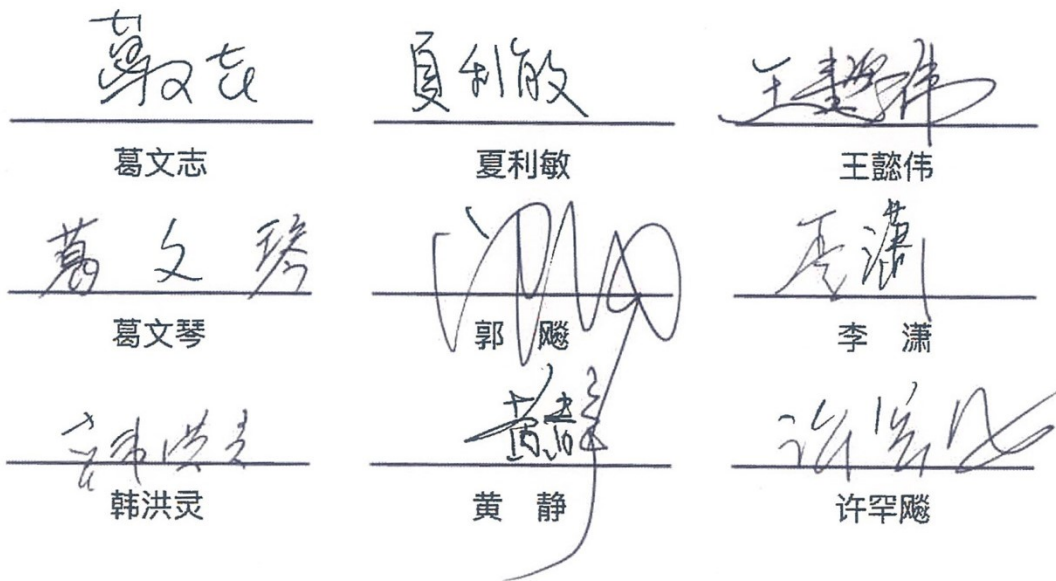 葛文志 夏利敏 王懿伟
葛文志 夏利敏 王懿伟
葛文琴
葛文琴 郭 飚 李 潇
韩洪灵 黄静
韩洪灵 黄 静 许罕飚